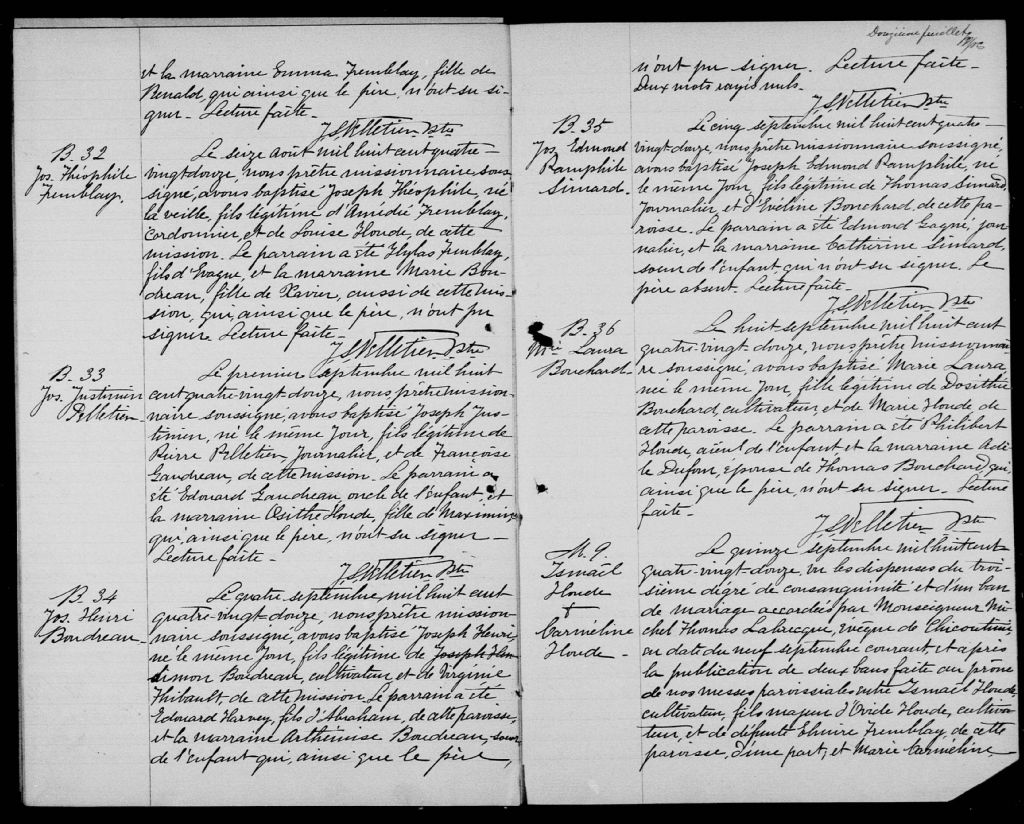 et la marraine Emma Tremblay, fille de
Renald, qui ainsi que le père, n'ont su si-
gner. Lecture faite.
J. S. Pelletier Ptre
B. 32
Jos. Théophile
Tremblay.
Le seize août mil huit cent quatre-
vingt-douze, nous prêtre missionnaire sous-
signé, avons baptisé Joseph Théophile, né
la veille, fils légitime d'Amédée Tremblay,
cordonnier, et de Louise Houde, de cette
mission. Le parrain a été Hylas Tremblay,
fils d'Evagre, et la marraine Marie Bou-
dreau, fille de Xavier, aussi de cette mis-
sion, qui, ainsi que le père, n'ont pu
signer. Lecture faite.
J. S. Pelletier Ptre
B. 33
Jos. Justinien
Pelletier
Le premier septembre mil huit
cent quatre-vingt-douze, nous prêtre mission-
naire soussigné, avons baptisé Joseph Jus-
tinien, né le même jour, fils légitime de
Pierre Pelletier, journalier, et de Françoise
Gaudreau, de cette mission. Le parrain a
été Edouard Gaudreau, oncle de l'enfant, et
la marraine Osithe Houde, fille de Maximin,
qui, ainsi que le père, n'ont su signer -
Lecture faite -
J. S. Pelletier Ptre
B. 34
Jos. Henri
Boudreau
Le quatre septembre mil huit cent
quatre-vingt-douze, nous prêtre mission-
naire soussigné, avons baptisé Joseph Henri,
né le même jour, fils légitime de Joseph Hen
Simon Boudreau, cultivateur, et de Virginie
Thibault, de cette mission. Le parrain a été
Edouard Harvey, fils d'Abraham, de cette paroisse,
et la marraine Arthémise Boudreau, soeur
de l'enfant qui, ainsi que le père,
Douzième feuillet
n'ont pu signer. Lecture faite -
Deux mots rayés nuls.
J. S. Pelletier Ptre
B. 35
Jos. Edmond
Pamphile
Simard.
Le cinq septembre mil huit cent quatre-
vingt-douze, nous prêtre missionnaire soussigné,
avons baptisé Joseph Edmond Pamphile, né
le même jour, fils légitime de Thomas Simard,
journalier, et d'Eveline Bouchard, de cette pa-
roisse. Le parrain a été Edmond Gagné, jour-
nalier, et la marraine Catherine Simard,
soeur de l'enfant, qui n'ont su signer. Le
père absent. Lecture faite -
J. S. Pelletier Ptre
B. 36
Mrie Laura
Bouchard
Le huit septembre mil huit cent
quatre-vingt-douze, nous prêtre missionnai-
re soussigné, avons baptisé Marie Laura,
née le même jour, fille légitime de Dosithée
Bouchard, cultivateur et de Marie Houde, de
cette paroisse. Le parrain a été Philibert
Houde, aïeul de l'enfant et la marraine Adè-
le Dufour, épouse de Thomas Bouchard, qui,
ainsi que le père, n'ont su signer. Lecture
faite -
J. S. Pelletier Ptre
M. 9.
Ismaïl
Houde
†
Carméline
Houde -
Le quinze septembre mil huit cent
quatre-vingt-douze, vu les dispenses du troi-
sième degré de consanguinité et d'un ban
de mariage accordées par Monseigneur Mi-
chel Thomas Labrecque, Evêque de Chicoutimi,
en date du neuf septembre courant et après
la publication de deux bans faite au prône
de nos messes paroissiales entre Ismaïl Houde,
cultivateur, fils majeur d'Ovide Houde, cultiva-
teur, et de défunte Elmire Tremblay, de cette
paroisse, d'une part, et Marie Carméline